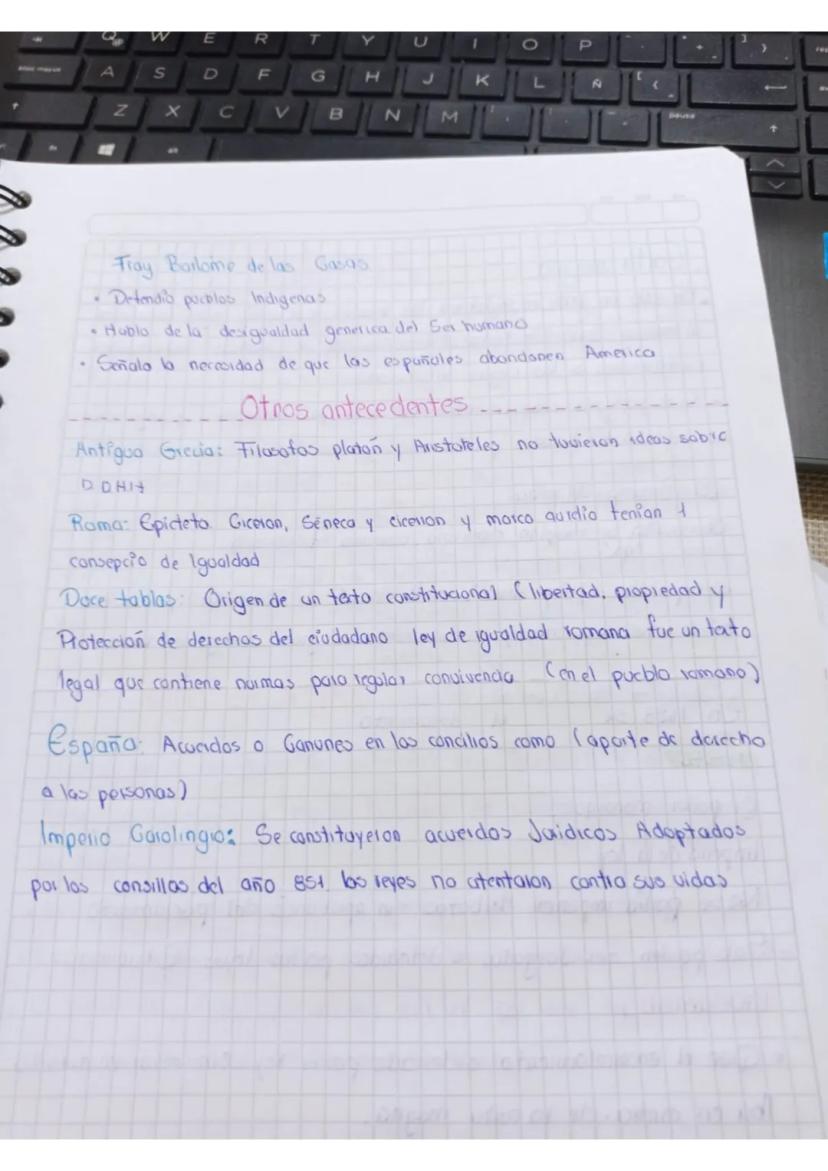 Q W E R T Y U I O P
A S D F G H J K L Ñ
Z X C V B N M
pausa
alt
Fray Bartolome de las Casas
• Defendió pueblos Indigenas
• Hablo de la desigualdad generica del Ser humano
• Señalo la necesidad de que las españoles abandonen America
Otros antecedentes
Antigua Grecia: Filosofos platon y Aristoteles no tuvieron ideas sobre
DDHH
Roma: Epicteto Ciceron, Séneca y ciceron y marco aurelio tenían 1
consepcio de Igualdad
Doce tablas: Origen de un texto constitucional (libertad, propiedad y
Protección de derechos del ciudadano ley de igualdad romana fue un texto
legal que contiene normas para regular convivencia (en el pueblo romano)
España: Acuerdos o Canones en los concilios como (aporte de derecho
a las personas)
Imperio Carolingio: Se constituyeron acuerdos Juridicos Adoptados
por los consillos del año 851 los reyes no atentaron contra sus vidas